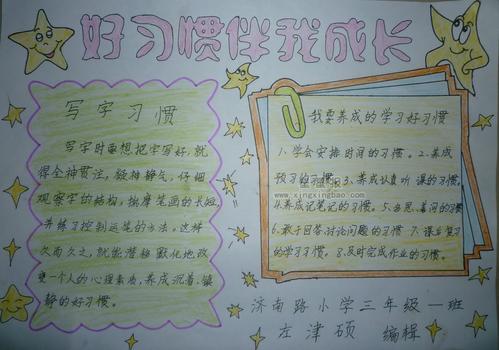 好习惯伴我成长
写字习惯
写字时要想把字写好,就
得全神贯注,凝神静气,仔细
观察字的结构,揣摩笔画的长短,
并练习控制运笔的方法。这样
久而久之,就能潜移默化地改
变一个人的心理素质,养成沉着、镇
静的好习惯。
我要养成的学习好习惯
1.学会安排时间的习惯。2.养成
预习的习惯。3.养成认真听课的习惯。
www.xingxingbao.com
4.养成记笔记的习惯。5.善思、善问的习惯
6.敢于回答讨论问题的习惯 7.课后复习
的学习习惯。8.及时完成作业的习惯。
济南路小学三年级一班
左津硕 编辑